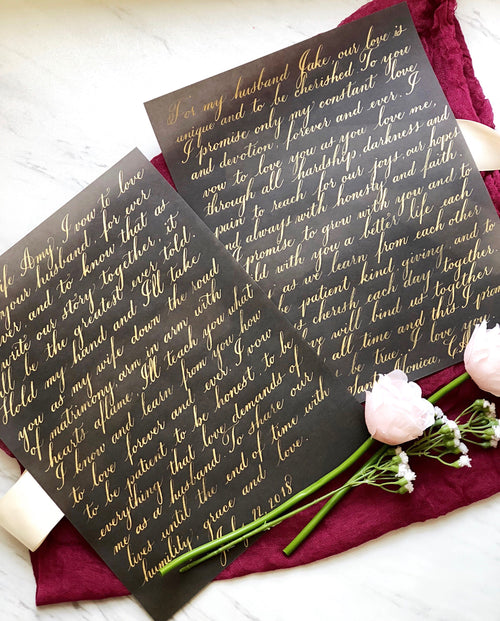 For my husband Jake, our love is
unique and to be cherished. To you
I promise only my constant love
and devotion, forever and ever. I
vow to love you as you love me,
through all hardship, darkness and
pain, to reach for our joys, our hopes
and always with honesty and faith.
promise to grow with you and to
ld with you a better life each
as we learn from each other
be patient, kind, giving, and to
cherish each day together
ve will bind us together
all time and this I
be true. I love you
Monica,
fe Amy, I vow to love
your husband, for ever
ever, and to know that as
write our story together, it
ll be the greatest ever told
Hold my hand and I'll take
you as my wife down the road
of matrimony, arm in arm with
hearts aflame. I'll teach you what
I know and learn from you how
to love forever and ever. I vow
to be patient, to be honest, to be
everything that love demands of
me as a husband. To share our
lives until the end of time with
humility, grace and love.
22, 2018